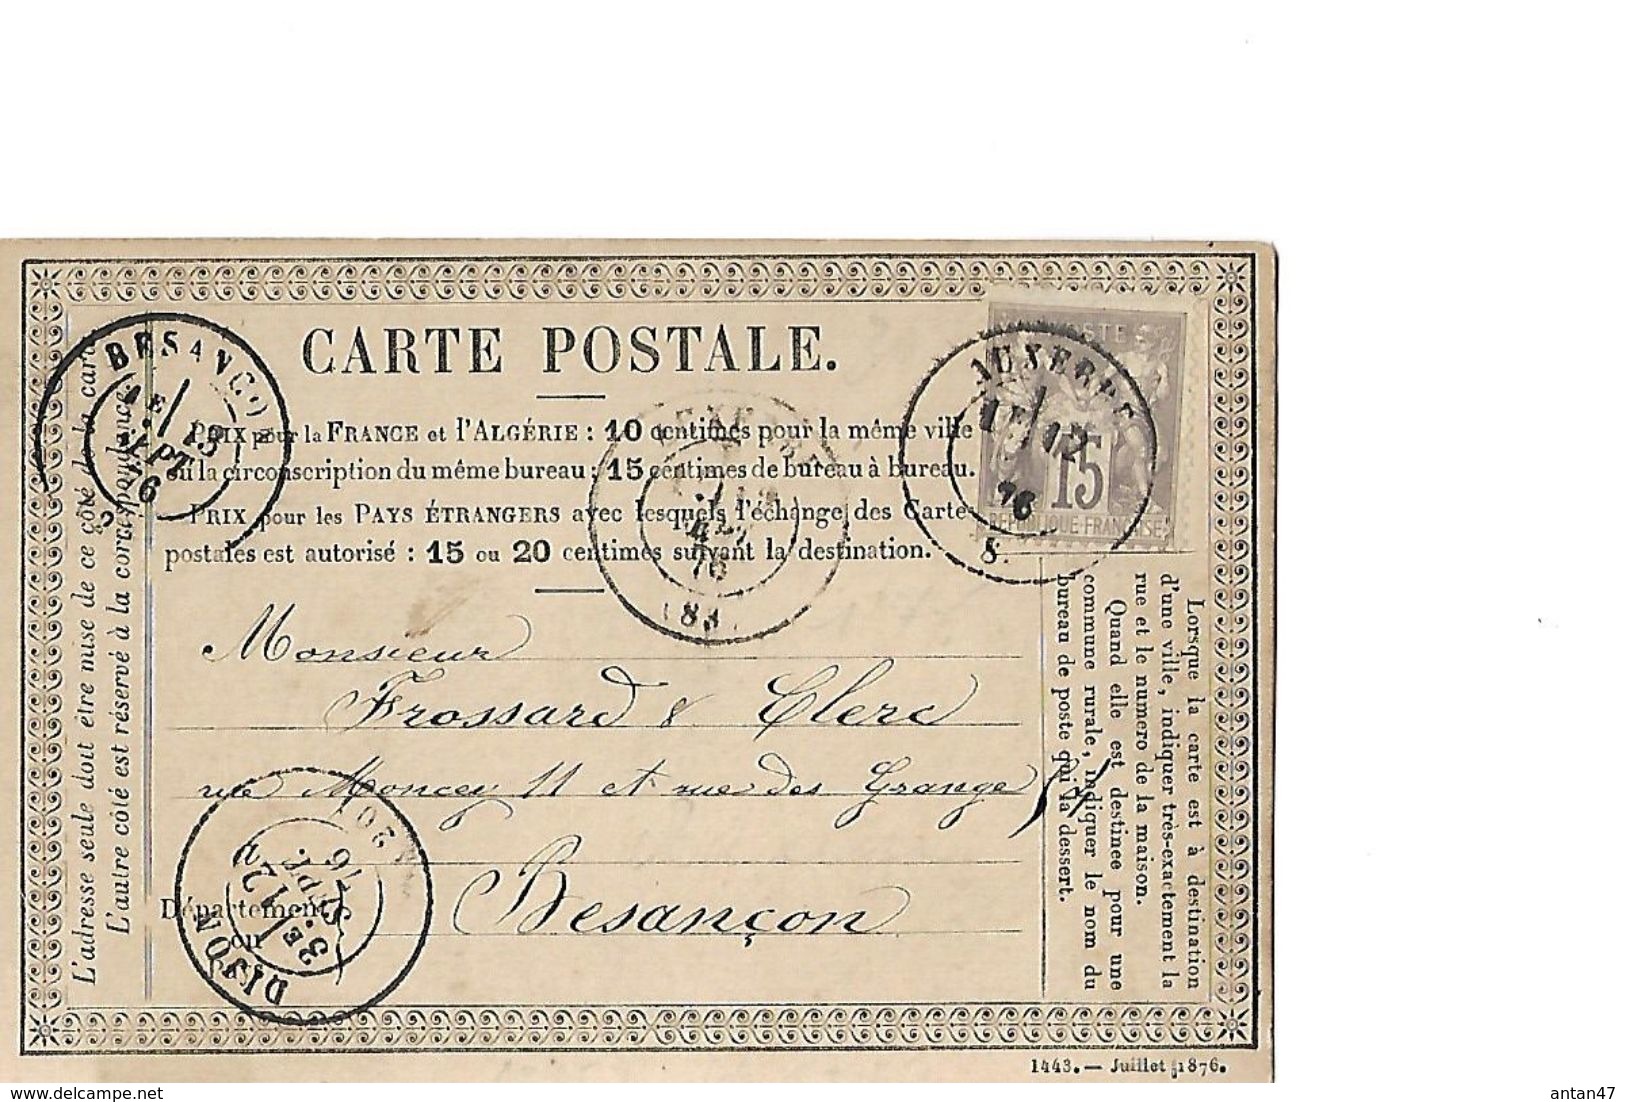 CARTE POSTALE.
PRIX pour la FRANCE et l'ALGÉRIE : 10 centimes pour la même ville
ou la circonscription du même bureau ; 15 centimes de bureau à bureau.
PRIX pour les PAYS ÉTRANGERS avec lesquels l'échange des Cartes
postales est autorisé : 15 ou 20 centimes suivant la destination.
Monsieur
Frossard & Clerc
rue Moncey 11 et rue des Grange
Besançon
Département
ou
L'adresse seule doit être mise de ce côté de la carte
L'autre côté est réservé à la correspondance.
Lorsque la carte est à destination
d'une ville, indiquer très-exactement la
rue et le numero de la maison.
Quand elle est destinee pour une
commune rurale, indiquer le nom du
bureau de poste qui la dessert.
POSTE
15
REPUBLIQUE FRANCAISE
AUXERRE
12
76
BESANCON
13
SEPT
76
AUXERRE
SEPT
76
DIJON
3E
12
SEPT.
76
1443. — Juillet 1876.
delcampe.net
antan47